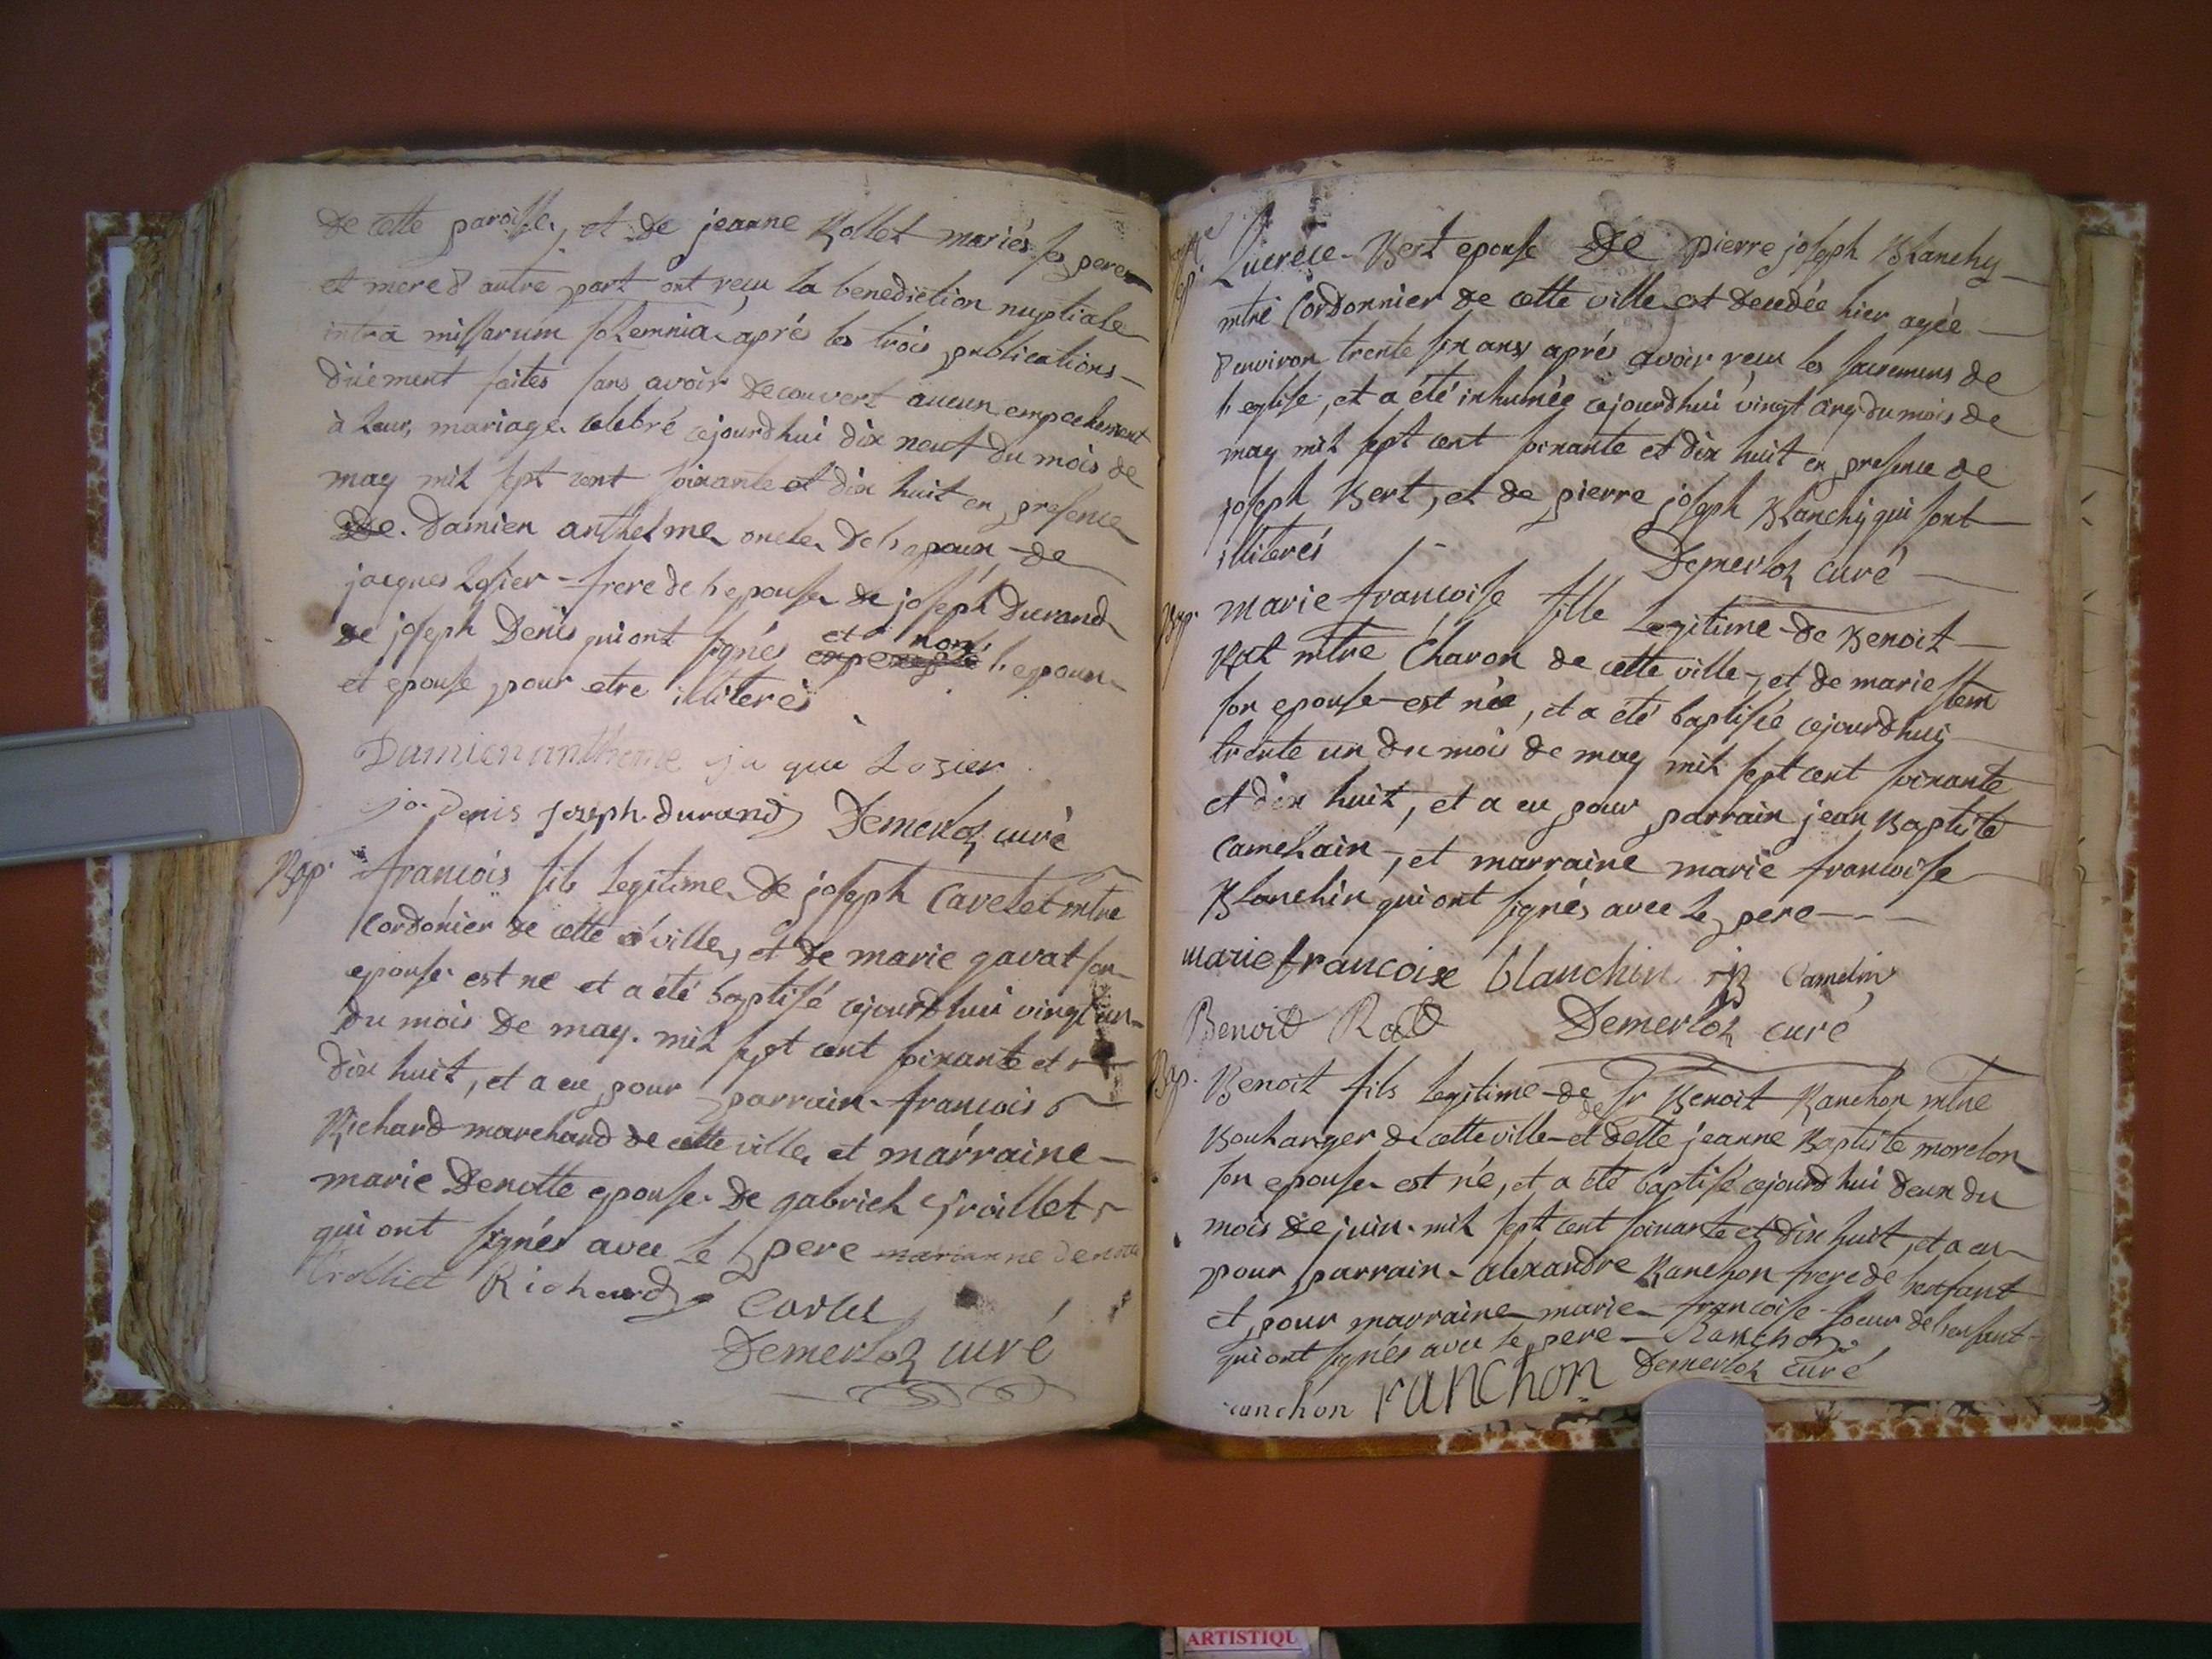 de cette paroisse, et de jeanne Rollet mariés ses pere
et mere d'autre part ont reçu la benediction nuptiale
intra missarum solemnia aprés les trois publications
düement faites sans avoir decouvert aucun empechement
à leur mariage celebré cejourdhui dix neuf du mois de
may mil sept cent soixante et dix huit en presence
de Damien anthelme oncle de l'epoux de
jacques Losier frere de l'epouse de joseph Durand
de joseph Denis qui ont signés et non l'epoux
et epouse pour etre illiterés
Damien antheme ja que Lozier
jo. Denis Joseph durand Demerloz curé
Bap. francois fils legitime de joseph Cavelet mtre
Cordonier de cette ville, et de marie gavat son
epouse est né et a été baptisé cejourdhui vingt un
du mois de may mil sept cent soixante et
dix huit, et a eu pour parrain francois
Richard marchand de cette ville et marraine
marie Denotte epouse de gabriel Troillet
qui ont signés avec le pere marianne
trolliet Richard
Demerloz curé
Lucrece Bert epouse de pierre joseph Blanchy
mtre Cordonnier de cette ville est decedée hier agée
d'environ trente six ans aprés avoir reçu les sacremens de
l'eglise, et a été inhumée cejourdhui vingt cinq du mois de
may mil sept cent soixante et dix huit en presence de
joseph Bert, et de pierre joseph Blanchy qui sont
illiterés Demerloz curé
Bap. marie francoise fille Legitime de Benoit
Rat mtre Charon de cette ville, et de marie
son epouse est née, et a été baptisée cejourdhui
trente un du mois de may mil sept cent soixante
et dix huit, et a eu pour parrain jean Baptiste
Camelain, et marraine marie francoise
Blanchin qui ont signés avec le pere
marie francoise blanchin jB Camelin
Benoit Rat Demerloz curé
Bap. Benoit fils legitime de sr Benoit Ranchon mtre
Boulanger de cette ville et de delle jeanne Baptiste morelon
son epouse est né, et a été baptisé cejourdhui deux du
mois de juin mil sept cent soixante et dix huit, et a eu
pour parrain alexandre Ranchon frere de l'enfant
et pour marraine marie francoise soeur de l'enfant
qui ont signés avec le pere Ranchon
ranchon ranchon Demerloz curé
ARTISTIQU